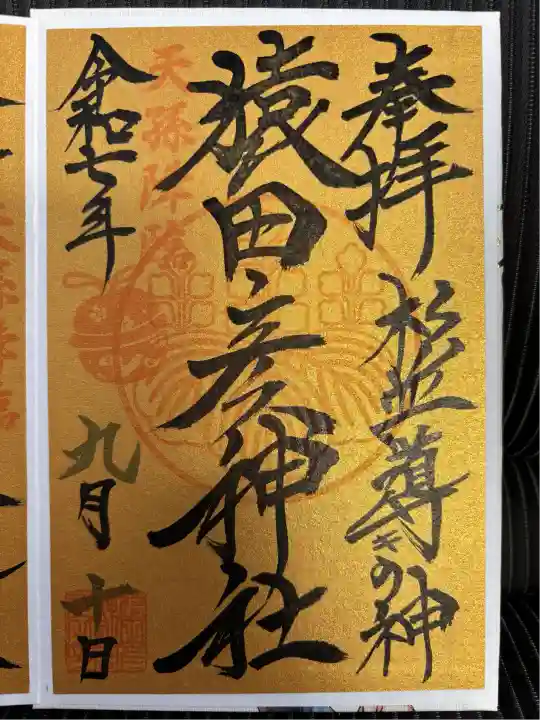 奉拝 杉並 導きの神
猿田彦神社
天孫降臨
令和七年 九月 十日